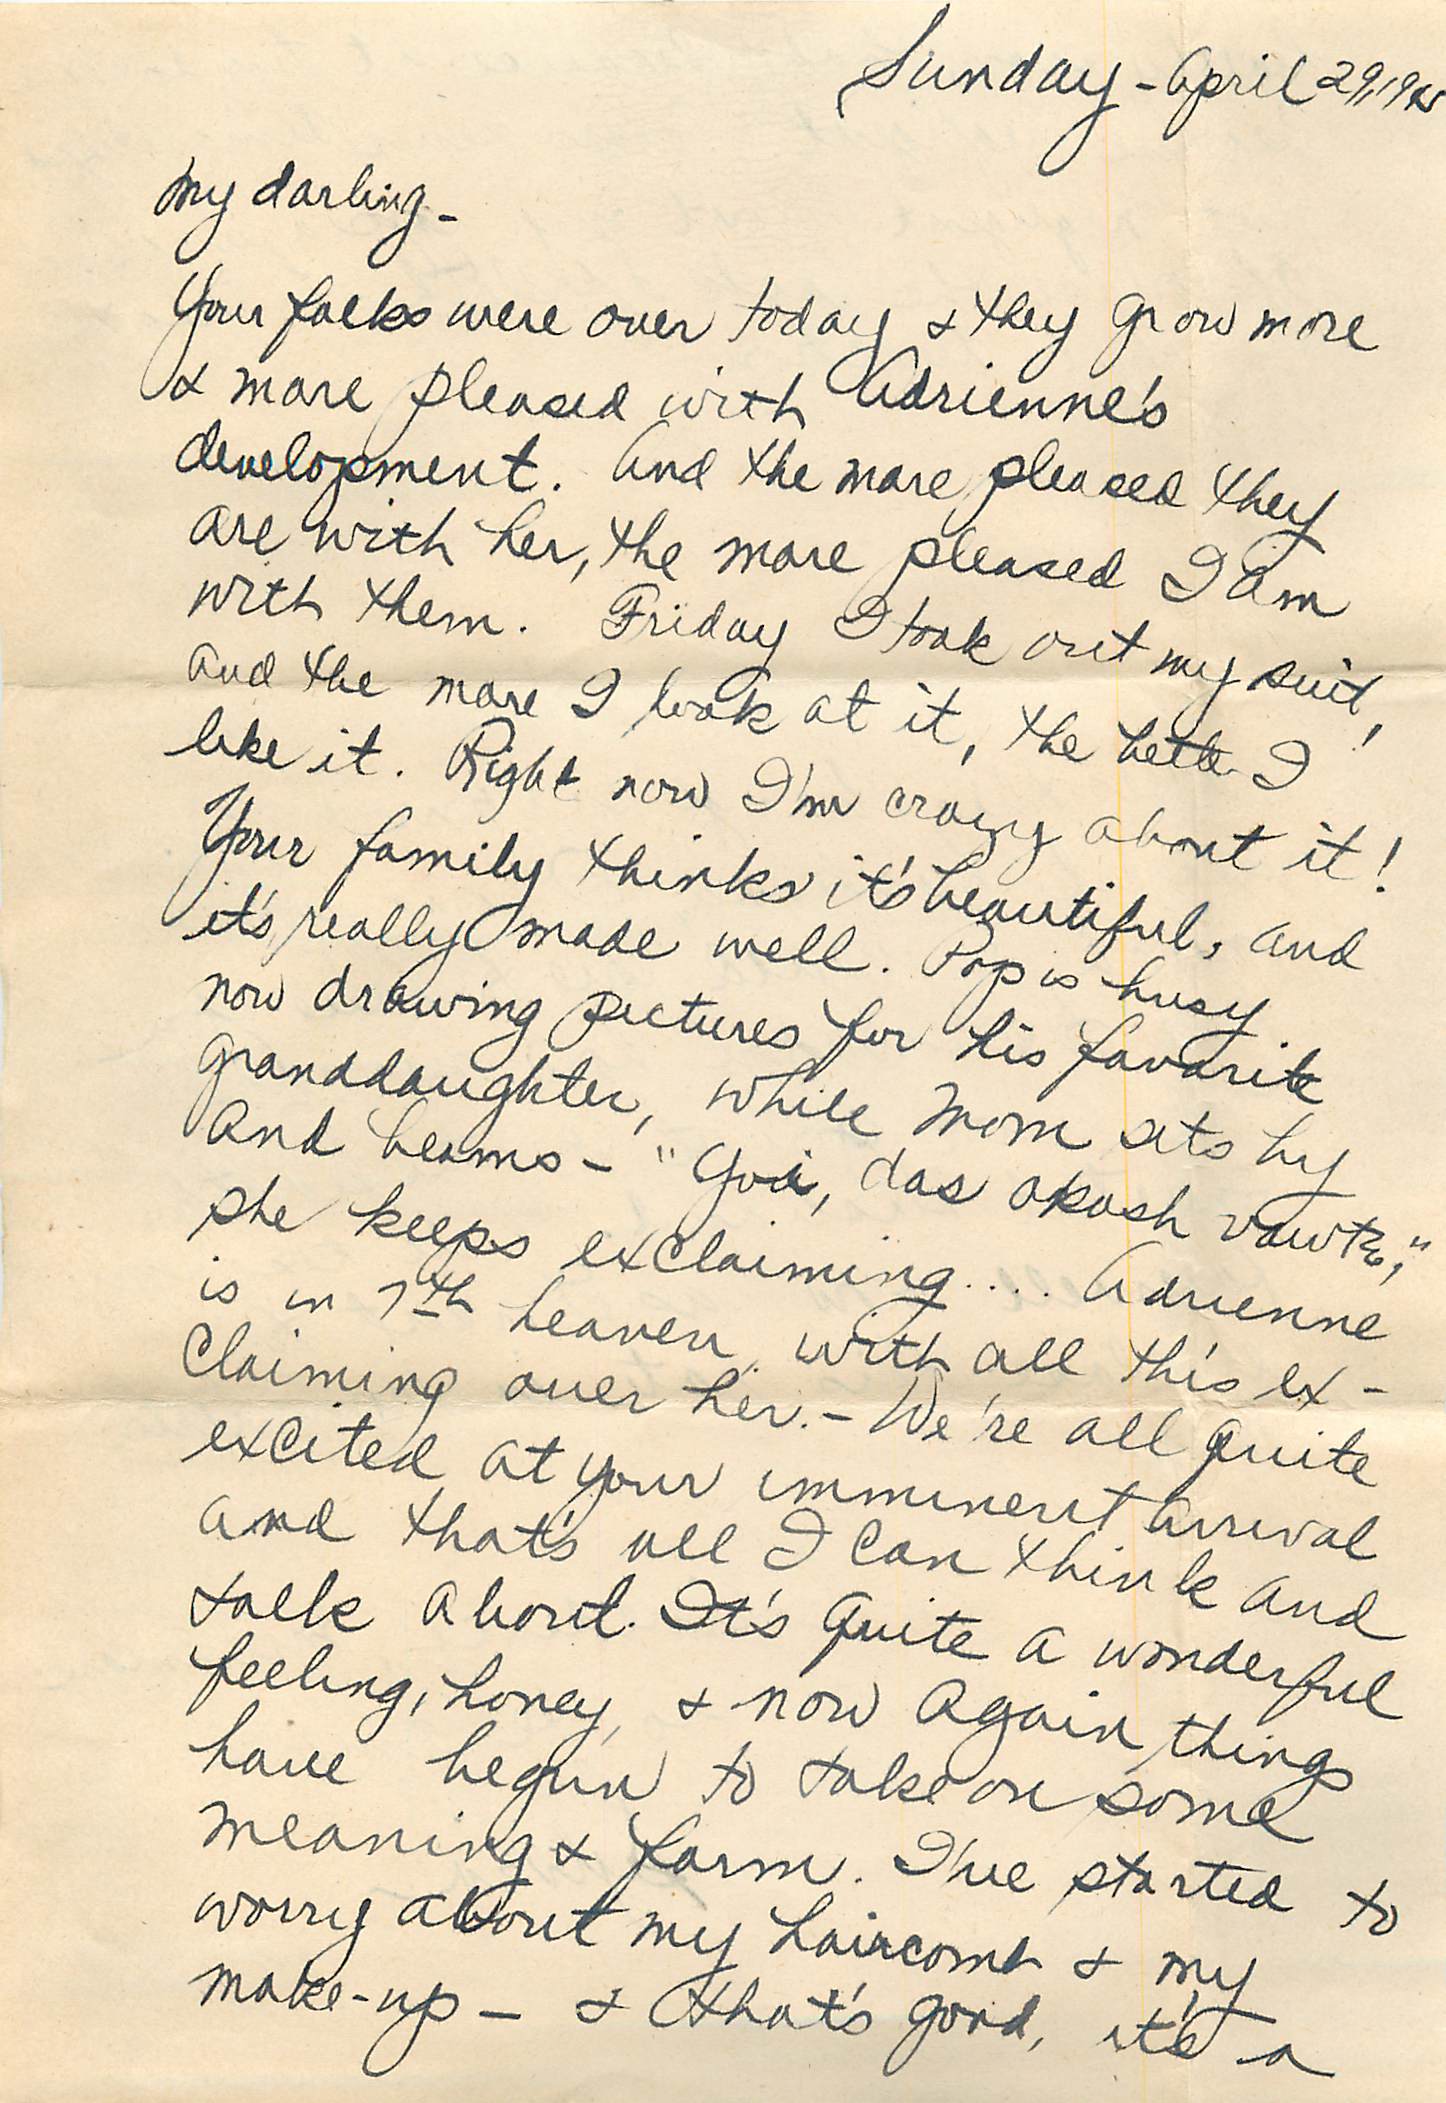 Sunday - April 29, 1945
My darling -
Your folks were over today & they grow more
& more pleased with Adrienne's
development. And the more pleased they
are with her, the more pleased I am
with them. Friday I took out my suit,
and the more I look at it, the better I
like it. Right now I'm crazy about it!
Your family thinks it's beautiful, and
it's really made well. Pop is busy
now drawing pictures for his favorite
granddaughter, while Mom sits by
and beams - "Goi, das okosh vawta,"
she keeps exclaiming.... Adrienne
is in 7th heaven with all this ex-
claiming over her. - We're all quite
excited at your imminent arrival
and that's all I can think and
talk about. It's quite a wonderful
feeling, honey, & now again things
have begun to take on some
meaning & form. I've started to
worry about my haircomb & my
make-up - & that's good, it's a